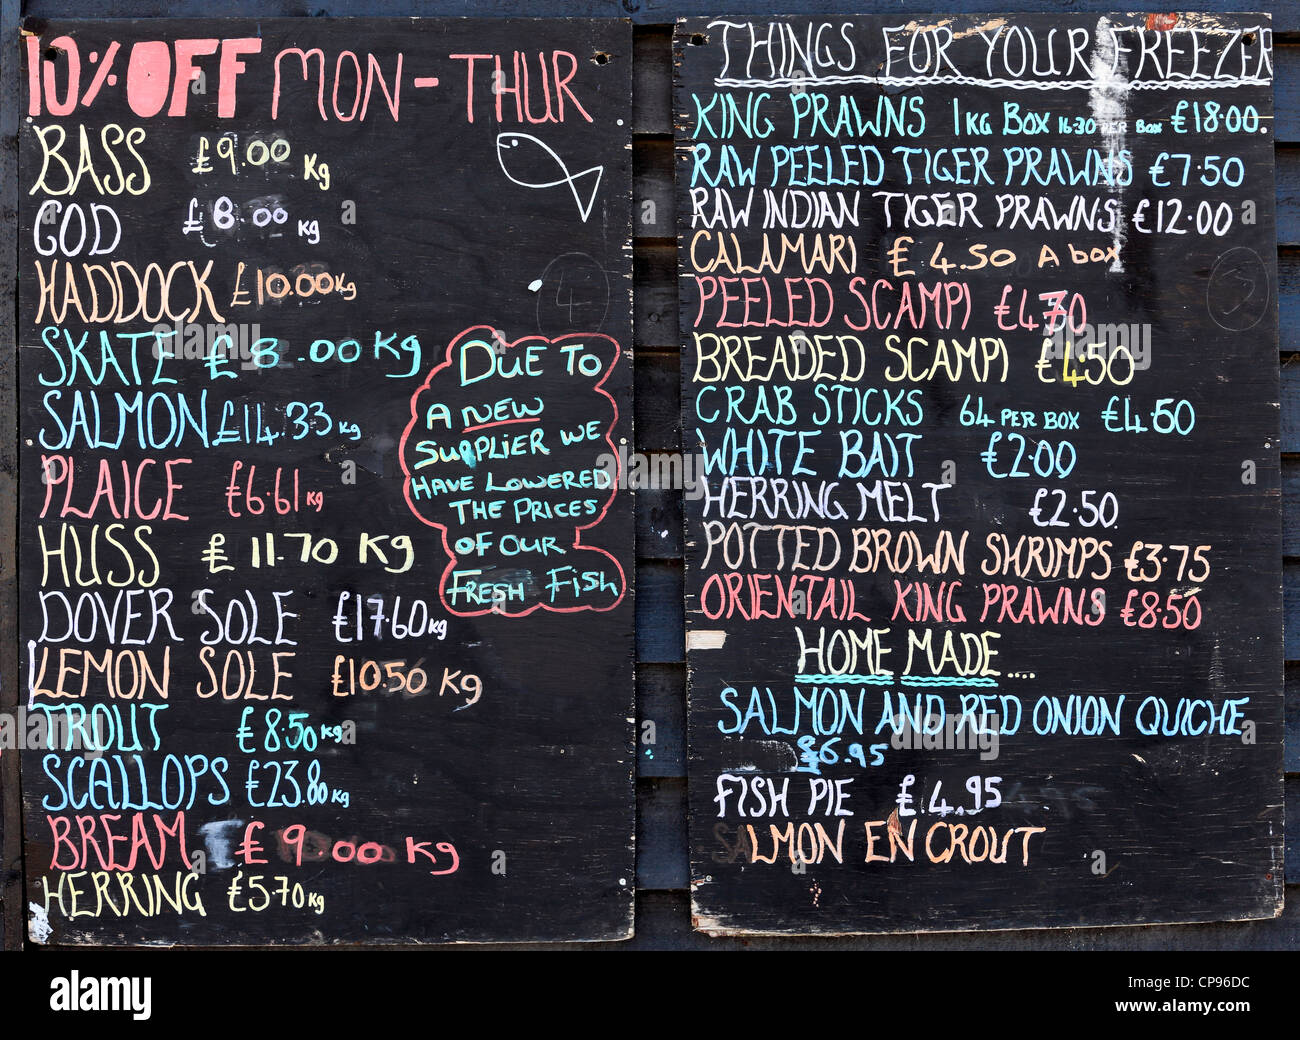 10% OFF MON - THUR
BASS £9.00 Kg
COD £8.00 Kg
HADDOCK £10.00 Kg
SKATE £8.00 Kg
SALMON £14.33 Kg
PLAICE £6.61 Kg
HUSS £11.70 Kg
DOVER SOLE £17.60 Kg
LEMON SOLE £10.50 Kg
TROUT £8.50 Kg
SCALLOPS £23.80 Kg
BREAM £9.00 Kg
HERRING £5.70 Kg
4
DUE TO
A NEW
SUPPLIER WE
HAVE LOWERED
THE PRICES
OF OUR
FRESH FISH
THINGS FOR YOUR FREEZER
KING PRAWNS 1KG BOX 16-30 PER BOX £18.00.
RAW PEELED TIGER PRAWNS £7.50
RAW INDIAN TIGER PRAWNS £12.00
CALAMARI £4.50 A box
PEELED SCAMPI £4.70
BREADED SCAMPI £4.50
CRAB STICKS 64 PER BOX £4.50
WHITE BAIT £2.00
HERRING MELT £2.50.
POTTED BROWN SHRIMPS £3.75
ORIENTAIL KING PRAWNS £8.50
3
HOME MADE....
SALMON AND RED ONION QUICHE
£6.95
FISH PIE £4.95
SALMON EN CROUT
alamy
Image ID: CP96DC
www.alamy.com